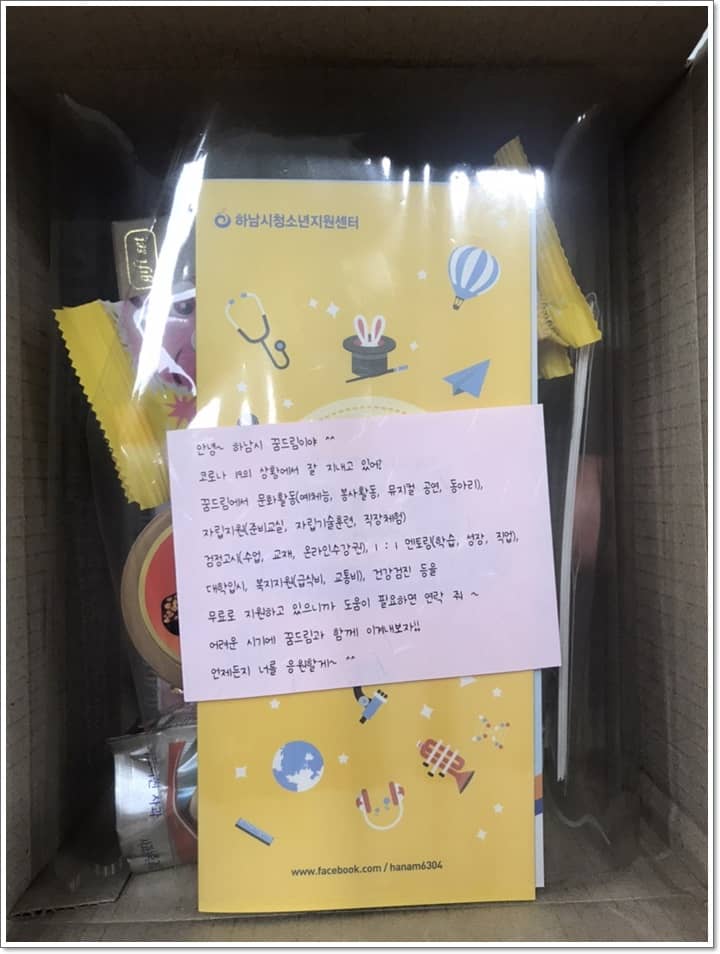 하남시청소년지원센터
gift set
안녕~ 하남시 꿈드림이야 ^^
코로나 19의 상황에서 잘 지내고 있어?
꿈드림에서 문화활동(예체능, 봉사활동, 뮤지컬 공연, 동아리),
자립지원(준비교실, 자립기술훈련, 직장체험)
검정고시(수업, 교재, 온라인수강권), 1 : 1 멘토링(학습, 성장, 직업),
대학입시, 복지지원(급식비, 교통비), 건강검진 등을
무료로 지원하고 있으니까 도움이 필요하면 연락 줘 ~
어려운 시기에 꿈드림과 함께 이겨내보자!!
언제든지 너를 응원할게~ ^^
사과
www.facebook.com / hanam6304